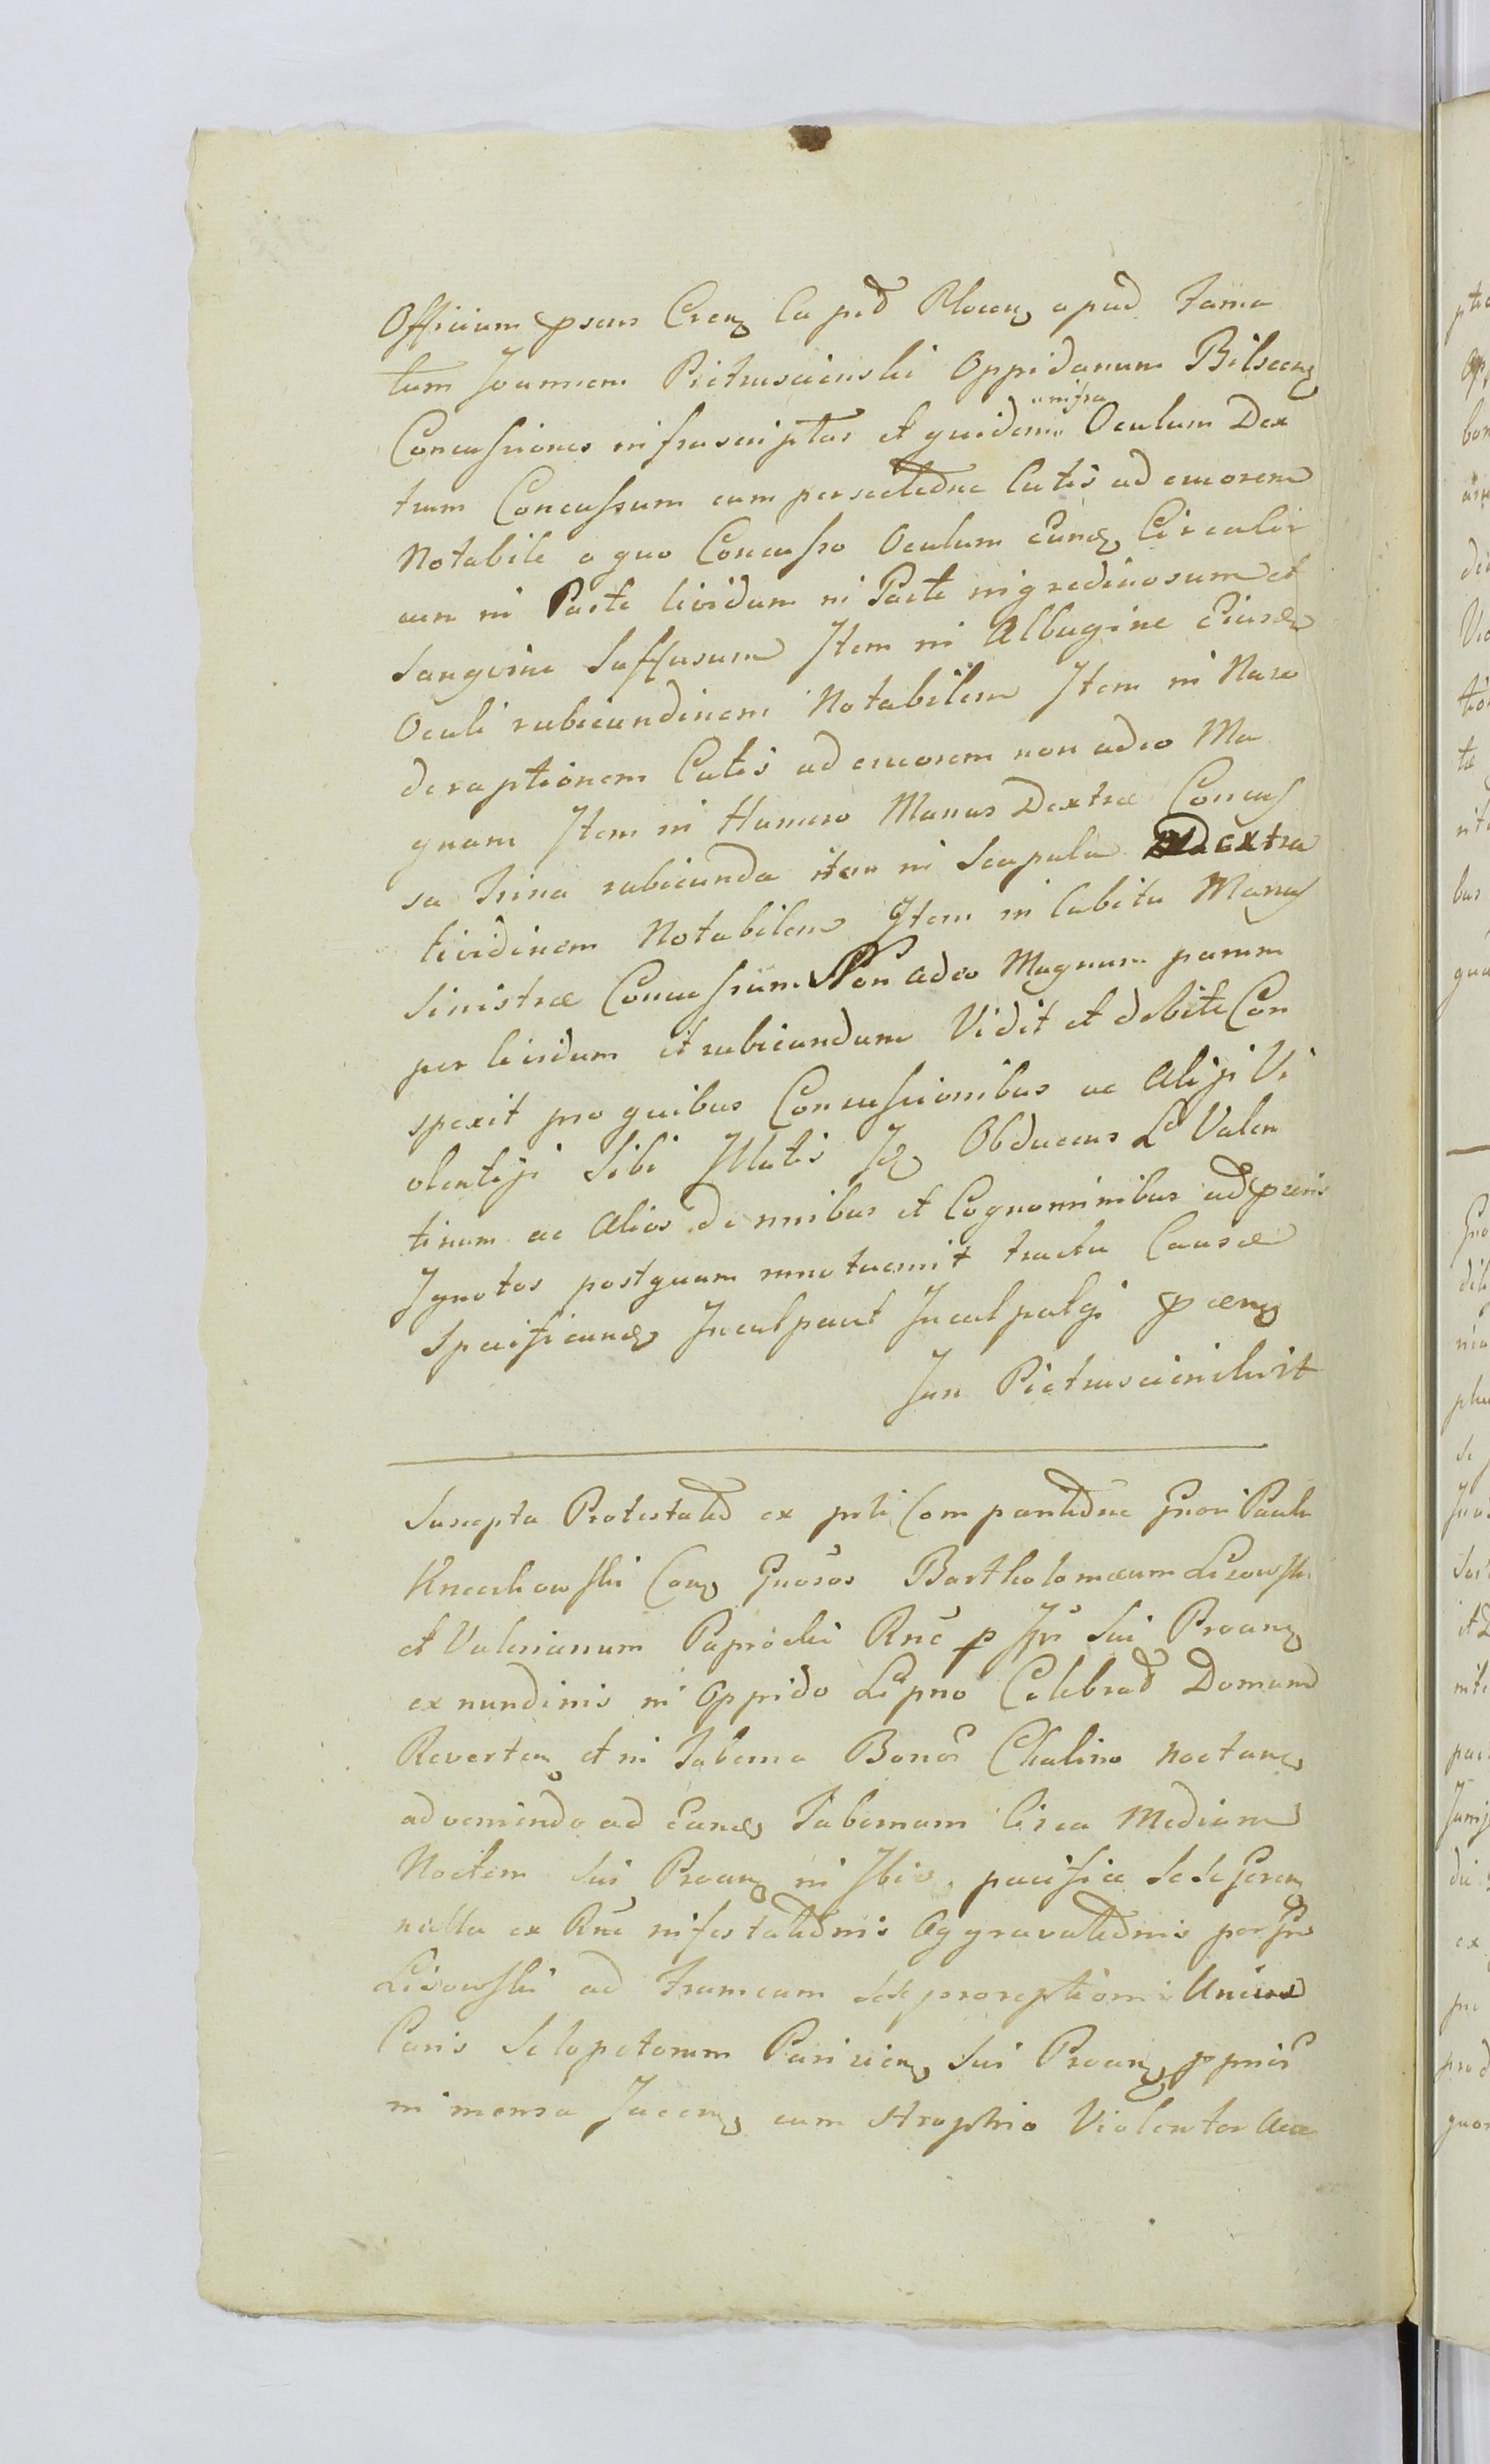 Officium psens Cren Ca prd Plocen apud Fama
tum Joannem Pietruscienski Oppidanum Bilscen
Concussiones infrascriptas et quidem infra Oculum Dex
trum Concussum cum persectedne Cutis ad cruorem
Notabile a quo Concusso Oculum Eund Circulor
cum in Parte lividum in Parte nigredinosum et
Sangvine Suffusum Item in Albugine Eiusd
Oculi rubicundinem Notabilem Item in Naso
deraptionem Cutis ad cruorem non adeo Ma
gnam Item in Humero Manus Dextrae Concus
sa Trina rubicunda item in Scapula Dextra
lividinem Notabilem Item in Cubitu Manus
Sinistrae Concussium Non adeo Magnum parum
per lividum et rubicundum Vidit et debite Con
spexit pro quibus Concussionibus ac Alijs Vi
olentijs Sibi Illatis Obducens Valen
tinum ac Alios de nnibus et Cognominibus ad praens
Ignotos postquam innotuerint tractu Causae
Specificand Inculpavit Inculpatq praen
Jan Pietruscienskiit
Suscepta Protestatio ex prti Comparitedne Gnosi Pauli
Knechowski Con Gnosos Bartholomaeum Lisowski
et Valerianum Paprocki Rne p Ipr Sui Proan
ex nundinis in Oppido Lipno Celebrad Domum
Reverten et in Taberna Bonor Chalino noctan
adveniendo ad Eand Tabernam Circa Mediam
Noctem Sui Proan in Ibid pacifice Se Se Geren
nulla ex Rne infestatednis Aggravatednis per Gns
Lisowski ad Frameam Sese proreptiom Unius
Paris Sclopetorum Parisien Sui Proan ppriis
in mensa Jacen cum Strophio Violenter Acce